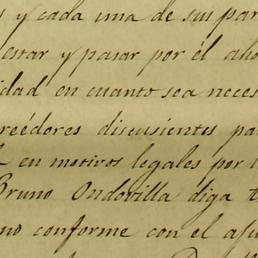 s y cada una de sus par
estar y pasar por el aho
idad en cuanto sea neces
reédores discusientes pa
en motivos legales por l
Bruno Ondovilla diga t
no conforme con el aju